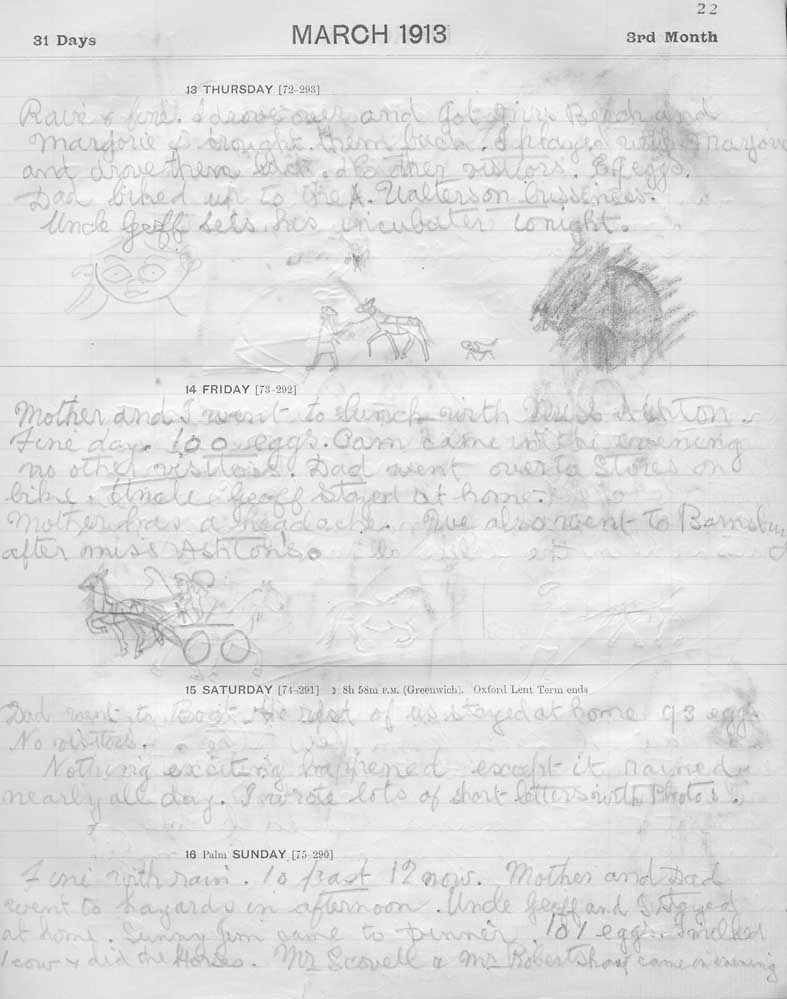 22
31 Days MARCH 1913 3rd Month
13 THURSDAY [72-293]
& fine. I drove over and got Beech and
Marjorie & brought them back. I played with Marjorie
and drove them back. No other visitors. eggs.
Dad biked up to the
Uncle Geoff sets his incubater tonight.
14 FRIDAY [73-292]
Mother and I went to lunch with Miss Ashton.
Fine day. 100 eggs. Cam came in the evening
no other visitors. Dad went over to Stores on
bike. Uncle Geoff stayed at home.
Mother has a headache. We also went to
after miss Ashton's.
15 SATURDAY [74-291] ☽ 8h 58m P.M. (Greenwich). Oxford Lent Term ends
Dad went to the rest of us stayed at home 93 eggs.
No visitors.
Nothing exciting happened except it rained
nearly all day. I wrote lots of short letters with Photos.
16 Palm SUNDAY [75-290]
Fine with rain. 10 past 12 now. Mother and Dad
went to in afternoon. Uncle Geoff and I stayed
at home. Sunny Jim came to dinner. 101 eggs. I milked
1 cow & did the Horses. Mr Scovell & Mr Robertshaw came in evening